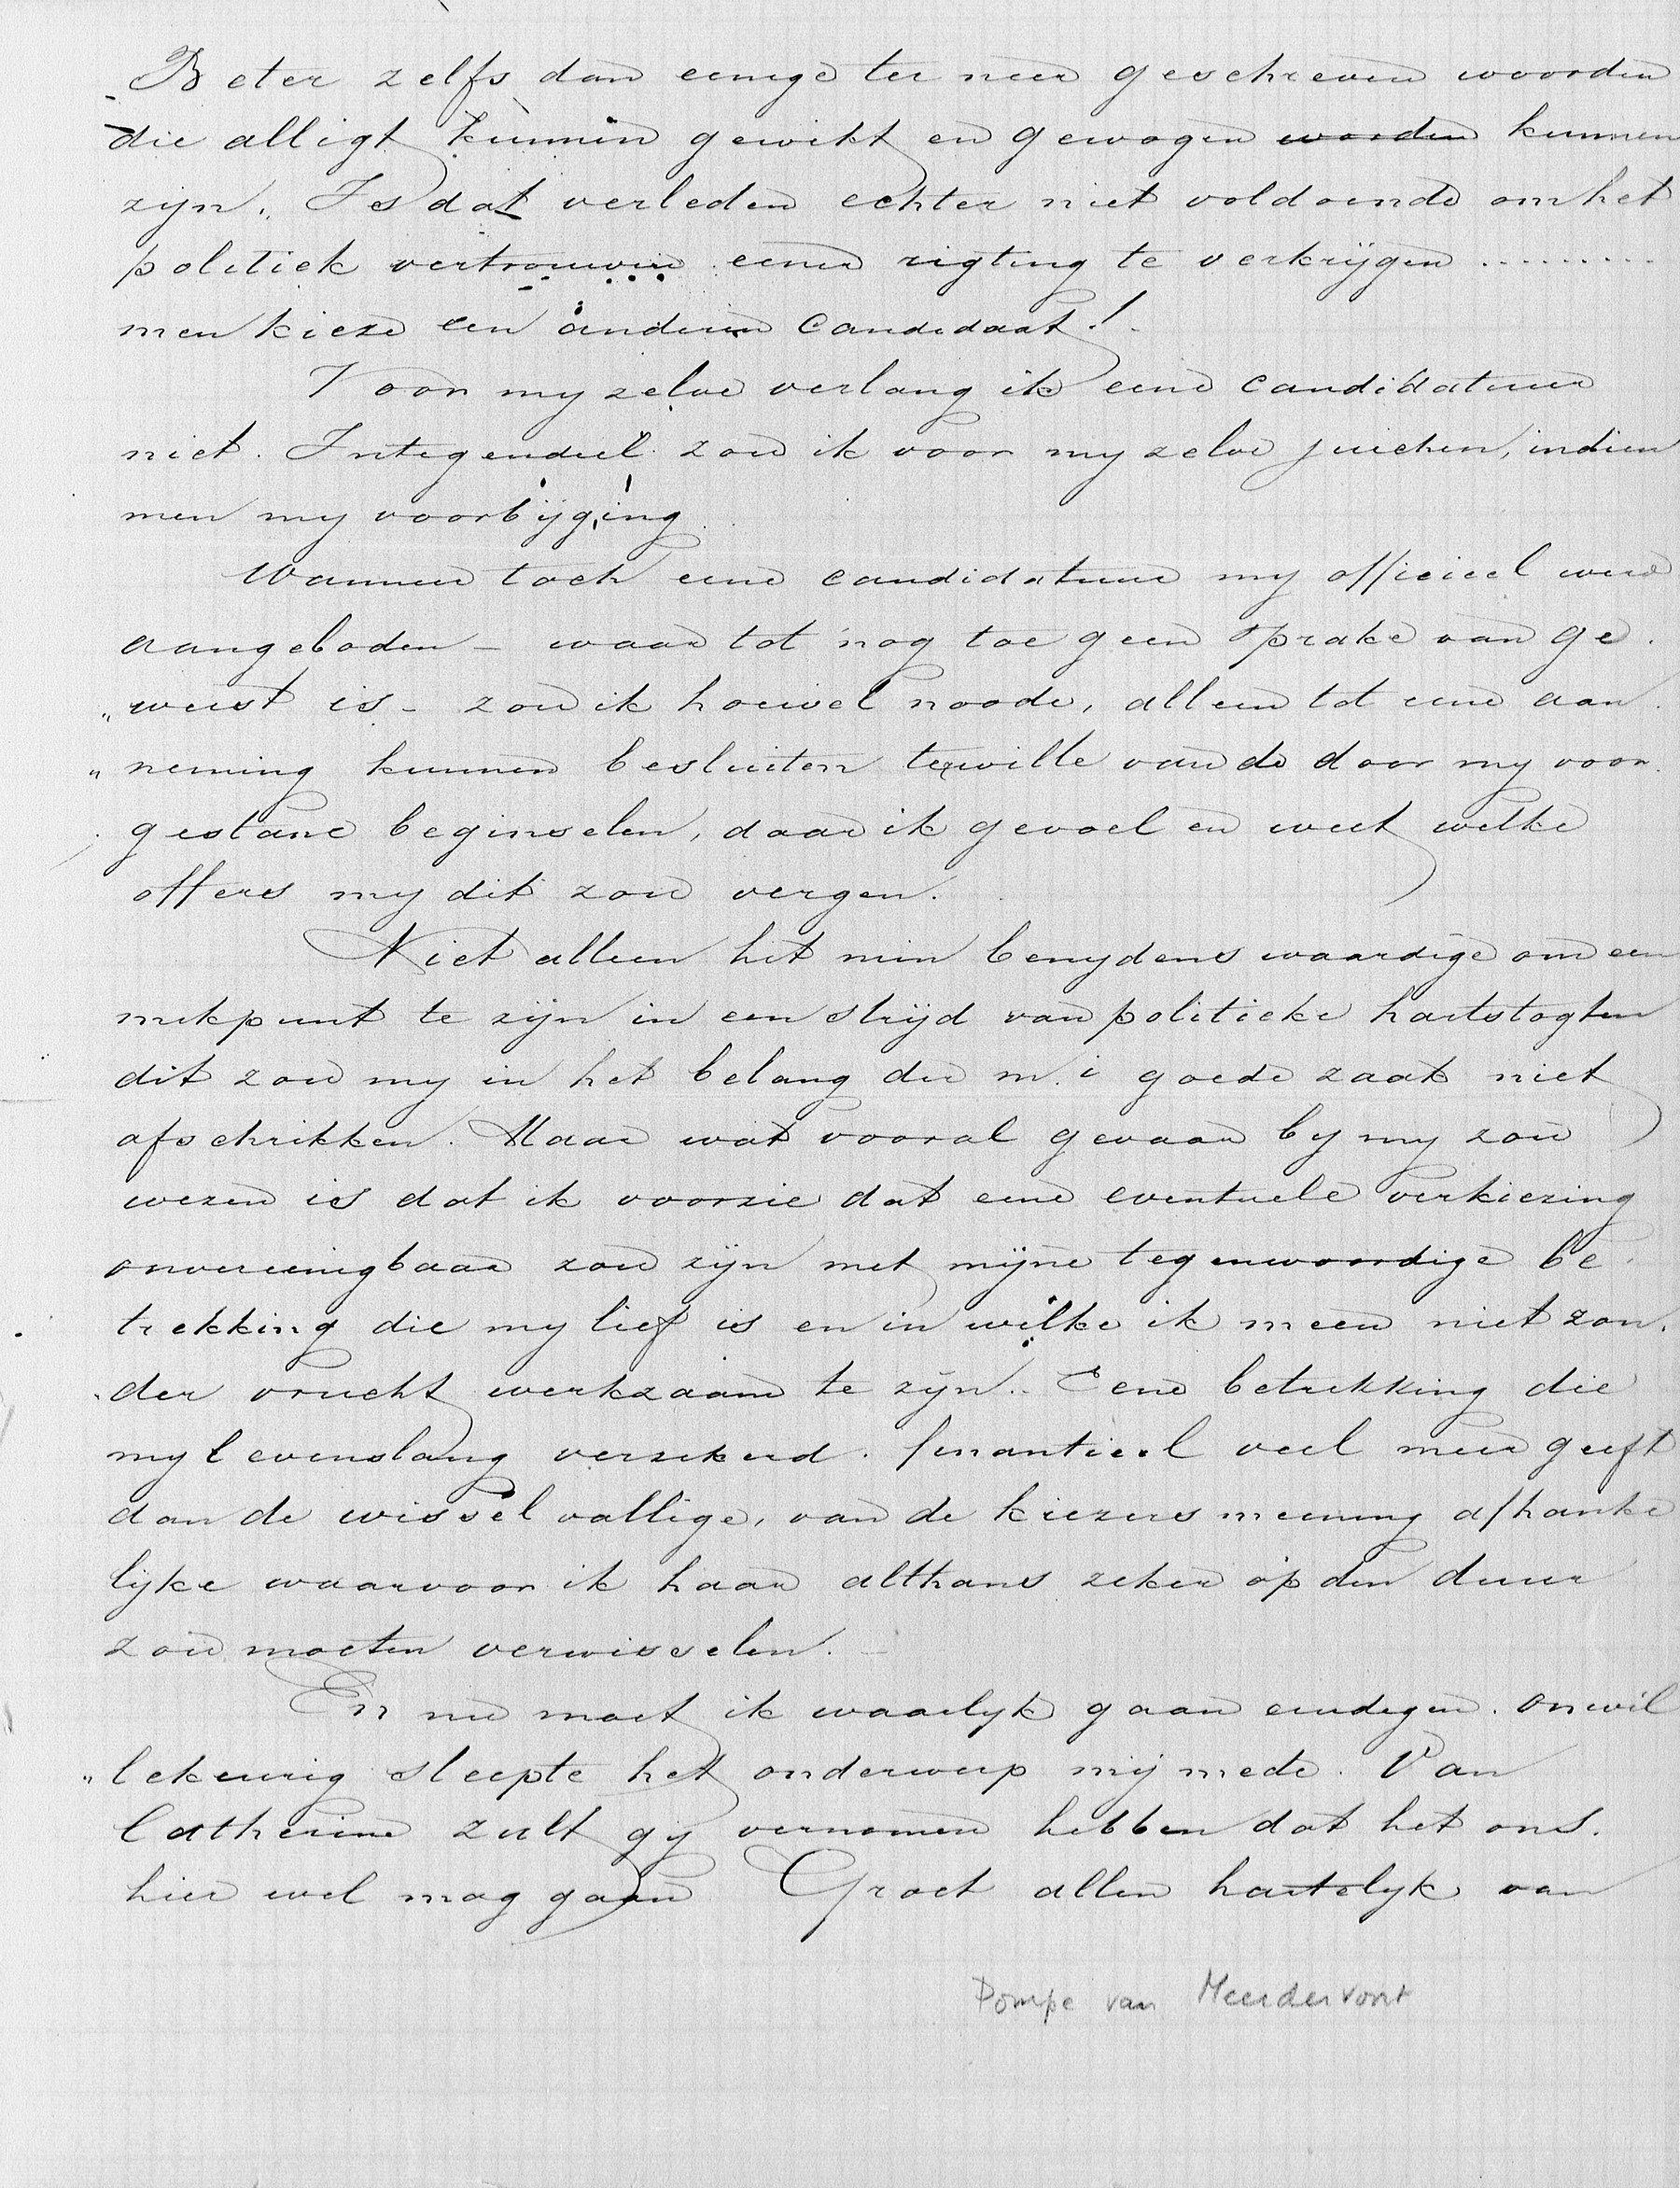 Beter zelfs dan eenige ter neer geschreven woorden
die alligt kunnen gewikt en gewogen worden kunnen
zijn. Is dat verleden echter niet voldoende om het
politiek vertrouwen eener rigting te verkrijgen .........
men kieze een anderen candidaat!
Voor my zelve verlang ik eene candidatuur
niet. Integendeel zou ik voor my zelve juichen, indien
men my voorbijging
Wanneer toch eene candidatuur my officieel werd
aangeboden - waar tot nog toe geen sprake van ge-
"weest is - zou ik hoewel noode, alleen tot eene aan-
"neming kunnen besluiten terwille van de door my voor-
gestane beginselen, daar ik gevoel en weet welke
offers my dit zou vergen.
Niet alleen het min benydens waardige om een
mikpunt te zijn in een strijd van politieke hartstogten
dit zou my in het belang der m.i goede zaak niet
afschrikken. Maar wat vooral gevaar by my zou
wezen is dat ik voorzie dat eene eventuele verkiezing
onvereenigbaar zou zijn met mijne tegenwoordige be-
trekking die my lief is en in welke ik meen niet zon-
der vrucht werkzaam te zijn. Eene betrekking die
my levenslang verzekerd. finantieel veel meer geeft
dan de wisselvallige, van de kiezers meening afhanke
lijke waarvoor ik haar althans zeker op den duur
zou moeten verwisselen. -
En nu moet ik waarlyk gaan eindigen. Onwil
"lekeurig sleepte het onderwerp mij mede. Van
Catherine zult gy vernomen hebben dat het ons.
hier wel mag gaan Groet allen hartelyk van
Pompe van Meerdervort